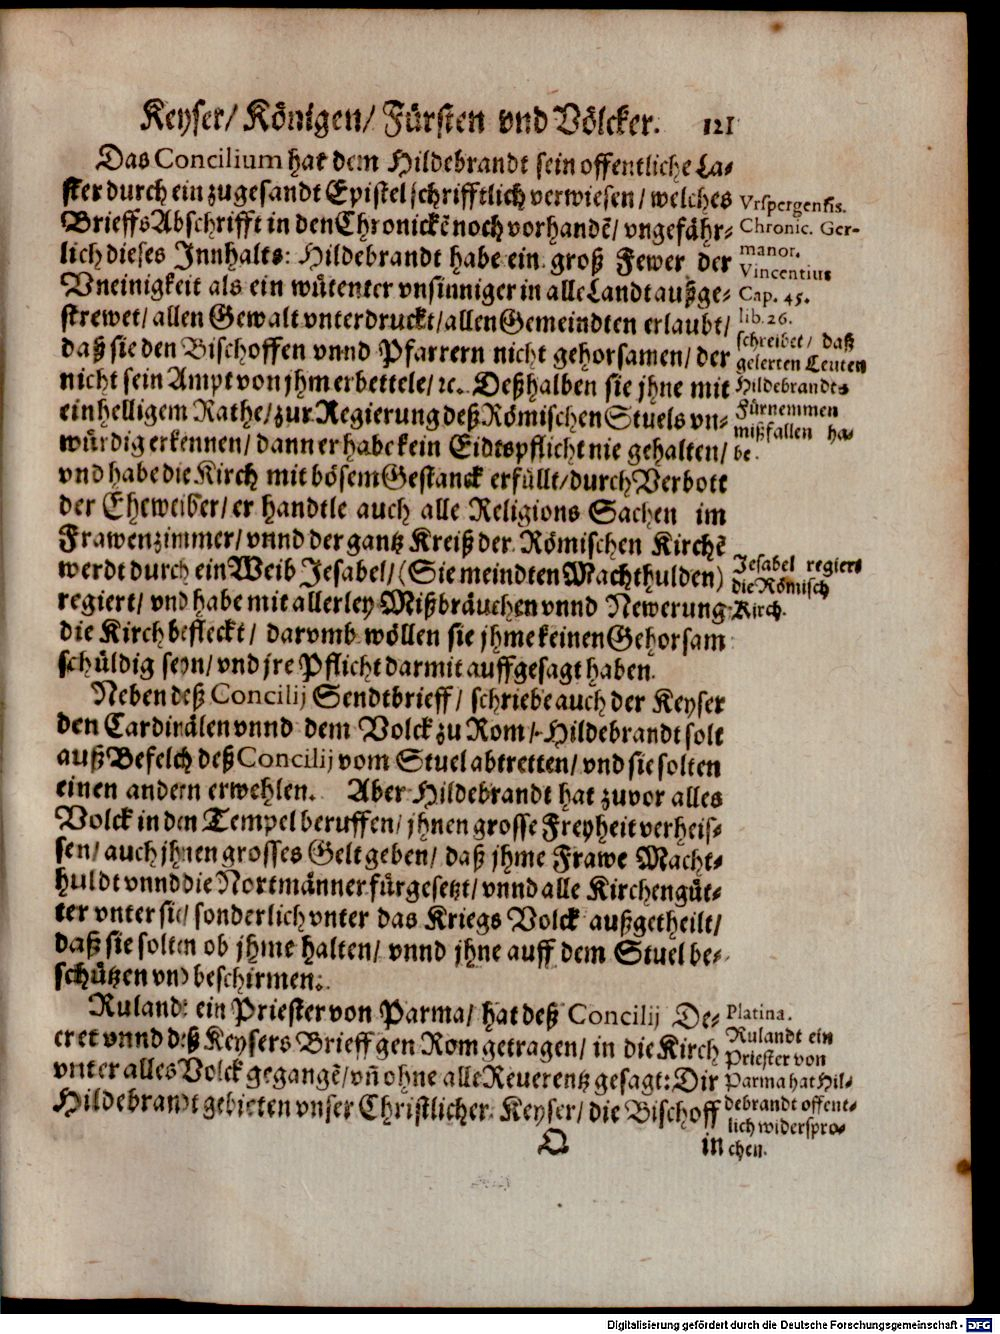 Keyser/ Königen/ Fürsten vnd Völcker. 121
Das Concilium hat dem Hildebrandt sein offentliche La-
ster durch ein zugesandt Epistel schrifftlich verwiesen/ welches
Brieffs Abschrifft in den Chronickē noch vorhandē/ vngefähr-
lich dieses Innhalts: Hildebrandt habe ein groß Fewer der
Vneinigkeit als ein wütenter vnsinniger in alle Landt außge-
strewet/ allen Gewalt vnterdruckt/ allen Gemeindten erlaubt/
daß sie den Bischoffen vnnd Pfarrern nicht gehorsamen/ der
nicht sein Ampt von jhm erbettele/ ꝛc. Deßhalben sie jhne mit
einhelligem Rathe/ zur Regierung deß Römischen Stuels vn-
würdig erkennen/ dann er habe kein Eidtspflicht nie gehalten/
vnd habe die Kirch mit bösem Gestanck erfüllt/ durch Verbott
der Eheweiber/ er handtle auch alle Religions Sachen im
Frawenzimmer/ vnnd der gantz Kreiß der Römischen Kirchē
werdt durch ein Weib Jesabel/ (Sie meindten Machthulden)
regiert/ vnd habe mit allerley Mißbräuchen vnnd Newerung
die Kirch befleckt/ darvmb wöllen sie jhme keinen Gehorsam
schüldig seyn/ vnd jre Pflicht darmit auffgesagt haben.
Neben deß Concilij Sendtbrieff/ schriebe auch der Keyser
den Cardinälen vnnd dem Volck zu Rom/ Hildebrandt solt
auß Befelch deß Concilij vom Stuel abtretten/ vnd sie solten
einen andern erwehlen. Aber Hildebrandt hat zuvor alles
Volck in den Tempel beruffen/ jhnen grosse Freyheit verheis-
sen/ auch jhnen grosses Gelt geben/ daß jhme Frawe Macht-
huldt vnnd die Nortmänner fürgesetzt/ vnnd alle Kirchengüt-
ter vnter sie/ sonderlich vnter das Kriegs Volck außgetheilt/
daß sie solten ob jhme halten/ vnnd jhne auff dem Stuel be-
schützen vnd beschirmen.
Ruland: ein Priester von Parma/ hat deß Concilij De-
cret vnnd deß Keysers Brieff gen Rom getragen/ in die Kirch
vnter alles Volck gegangē/ vn̄ ohne alle Reuerentz gesagt: Dir
Hildebrandt gebieten vnser Christlicher Keyser/ die Bischoff
Q in
Vrspergensis.
Chronic. Ger-
manor.
Vincentius
Cap. 45.
lib. 26.
schreibet/ daß
gelerten Leuten
Hildebrandts
Fürnemmen
mißfallen ha-
be.
Jesabel regiert
die Römisch
Kirch.
Platina.
Rulandt ein
Priester von
Parma hat Hil-
debrandt offent-
lich widerspro-
chen.
Digitalisierung gefördert durch die Deutsche Forschungsgemeinschaft - DFG